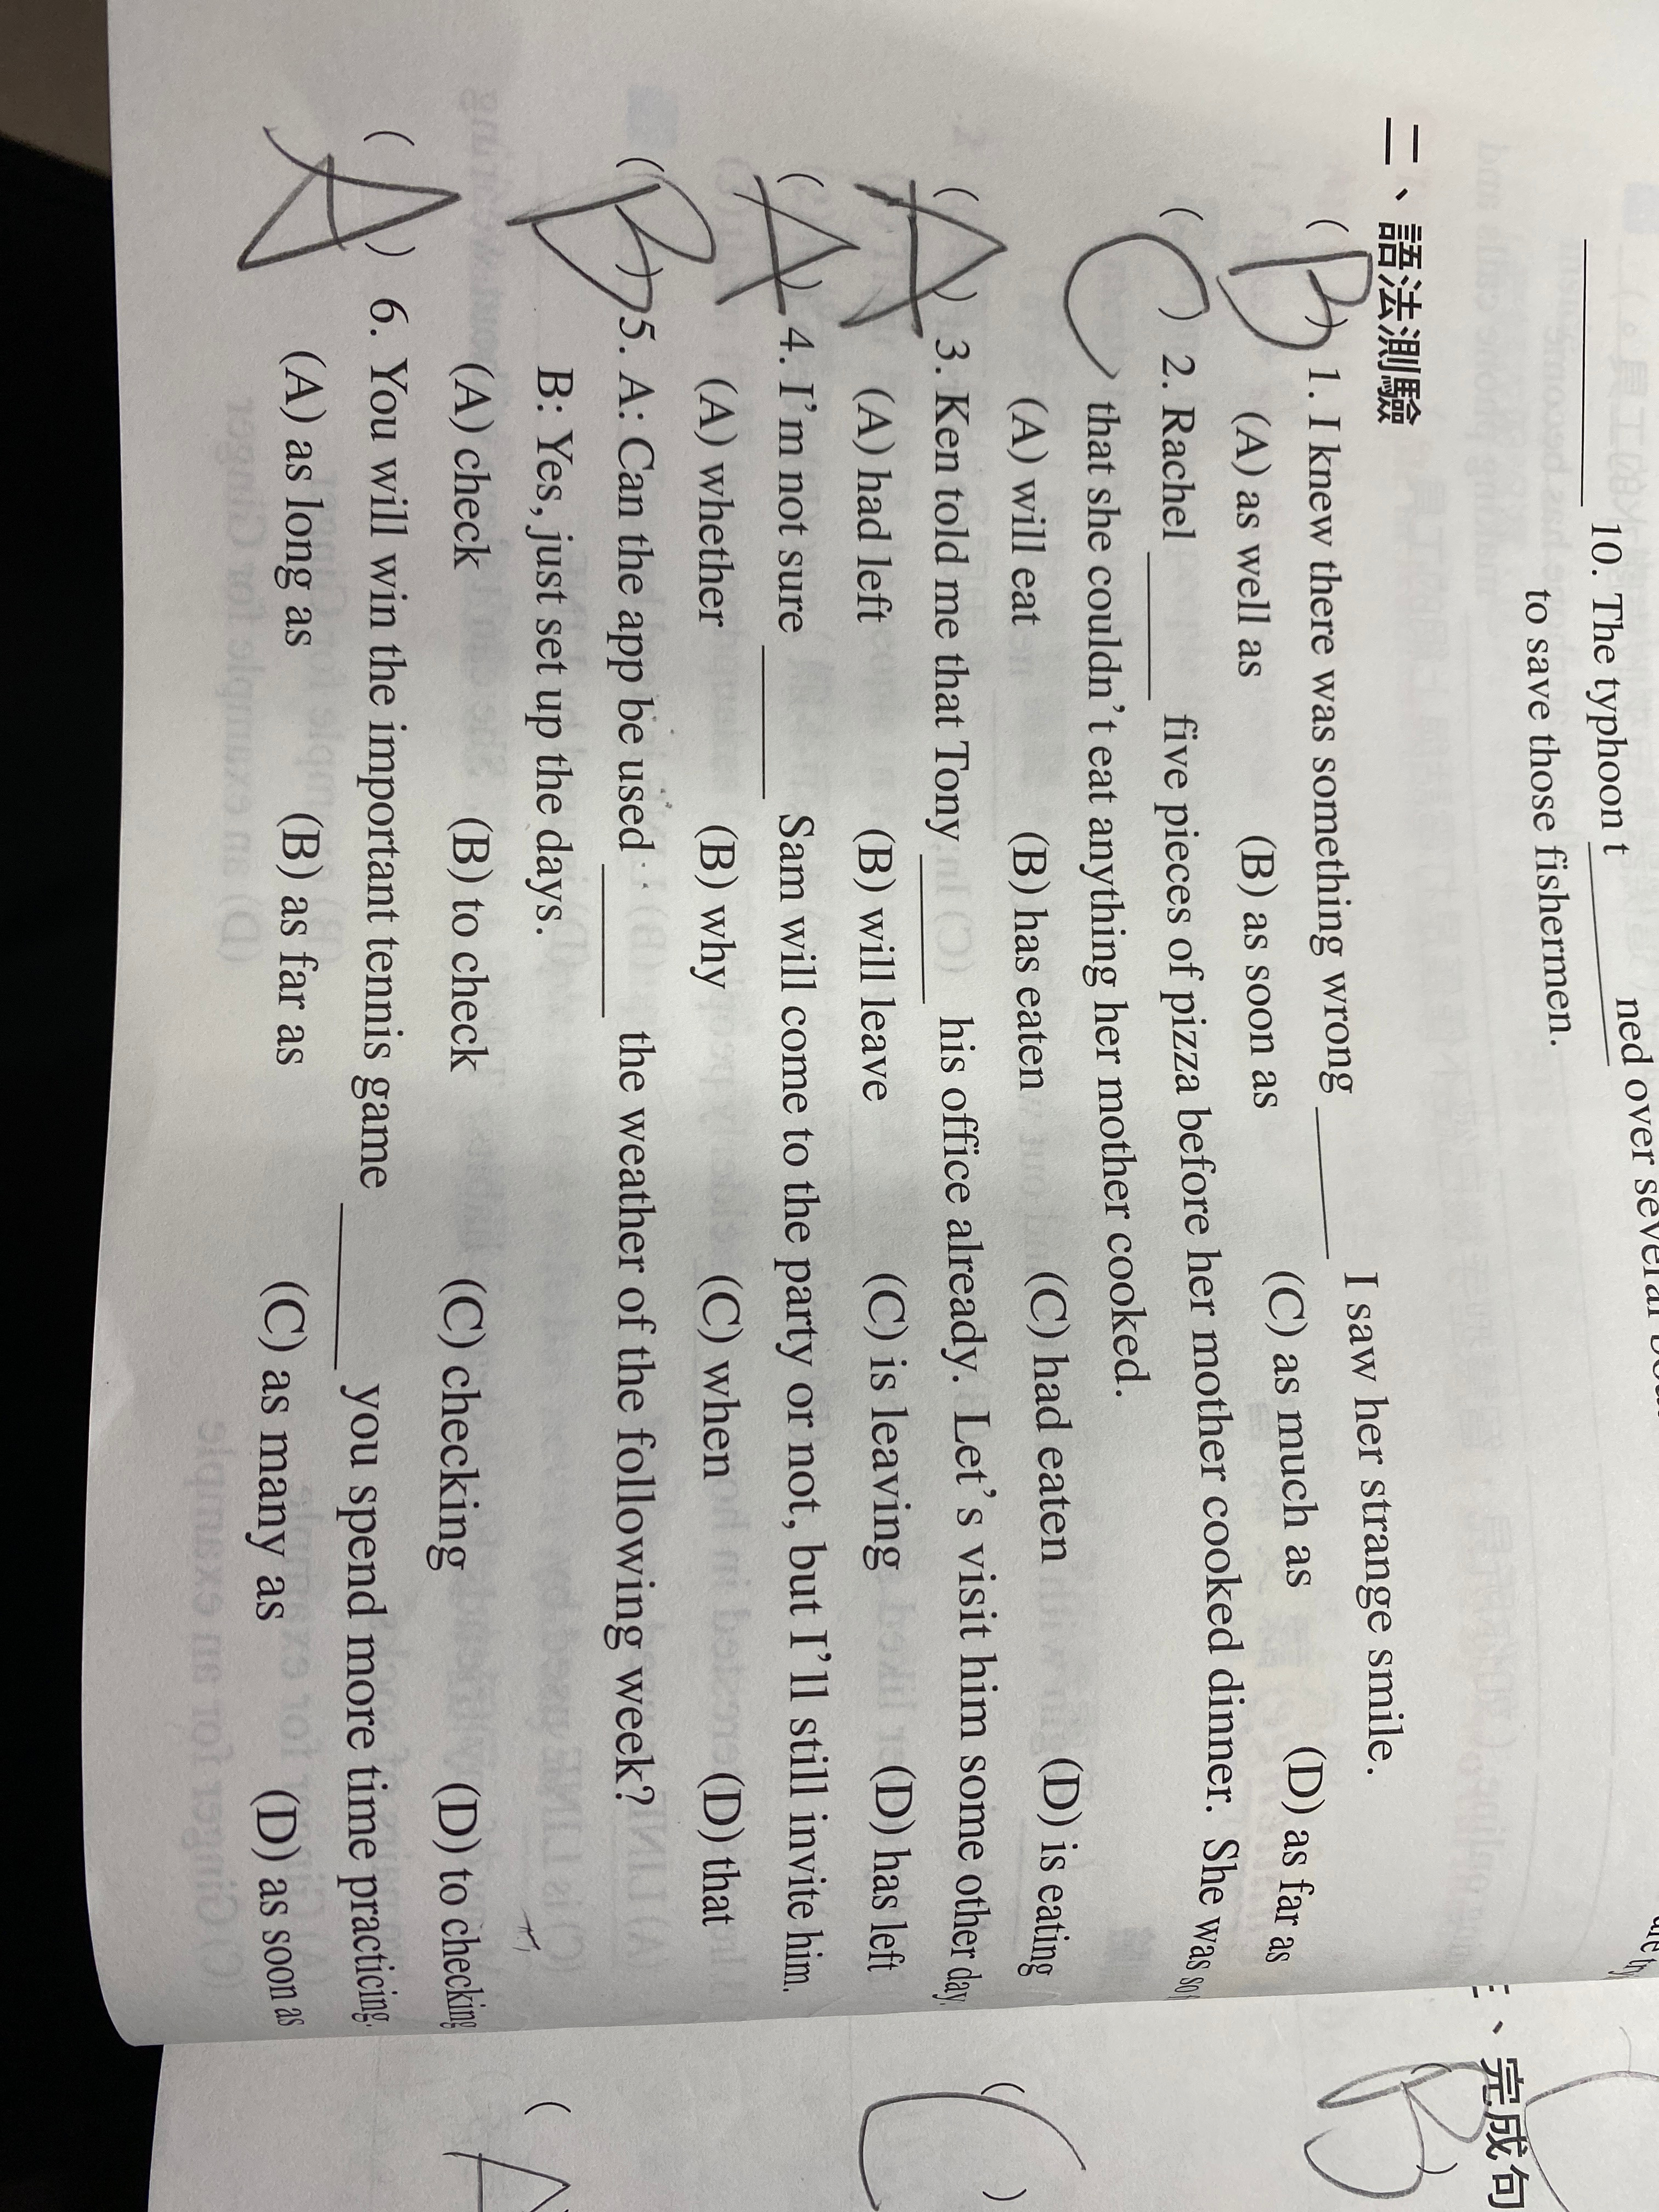 10. The typhoon t________ned over several
to save those fishermen.
二、語法測驗
( B ) 1. I knew there was something wrong ________ I saw her strange smile.
(A) as well as (B) as soon as (C) as much as (D) as far as
( C ) 2. Rachel ________ five pieces of pizza before her mother cooked dinner. She was so
that she couldn't eat anything her mother cooked.
(A) will eat (B) has eaten (C) had eaten (D) is eating
( A ) 3. Ken told me that Tony ________ his office already. Let's visit him some other day.
(A) had left (B) will leave (C) is leaving (D) has left
( A ) 4. I'm not sure ________ Sam will come to the party or not, but I'll still invite him.
(A) whether (B) why (C) when (D) that
( B ) 5. A: Can the app be used ________ the weather of the following week?
B: Yes, just set up the days.
(A) check (B) to check (C) checking (D) to checking
( A ) 6. You will win the important tennis game ________ you spend more time practicing.
(A) as long as (B) as far as (C) as many as (D) as soon as
三、完成句
( B )
( C )
( A